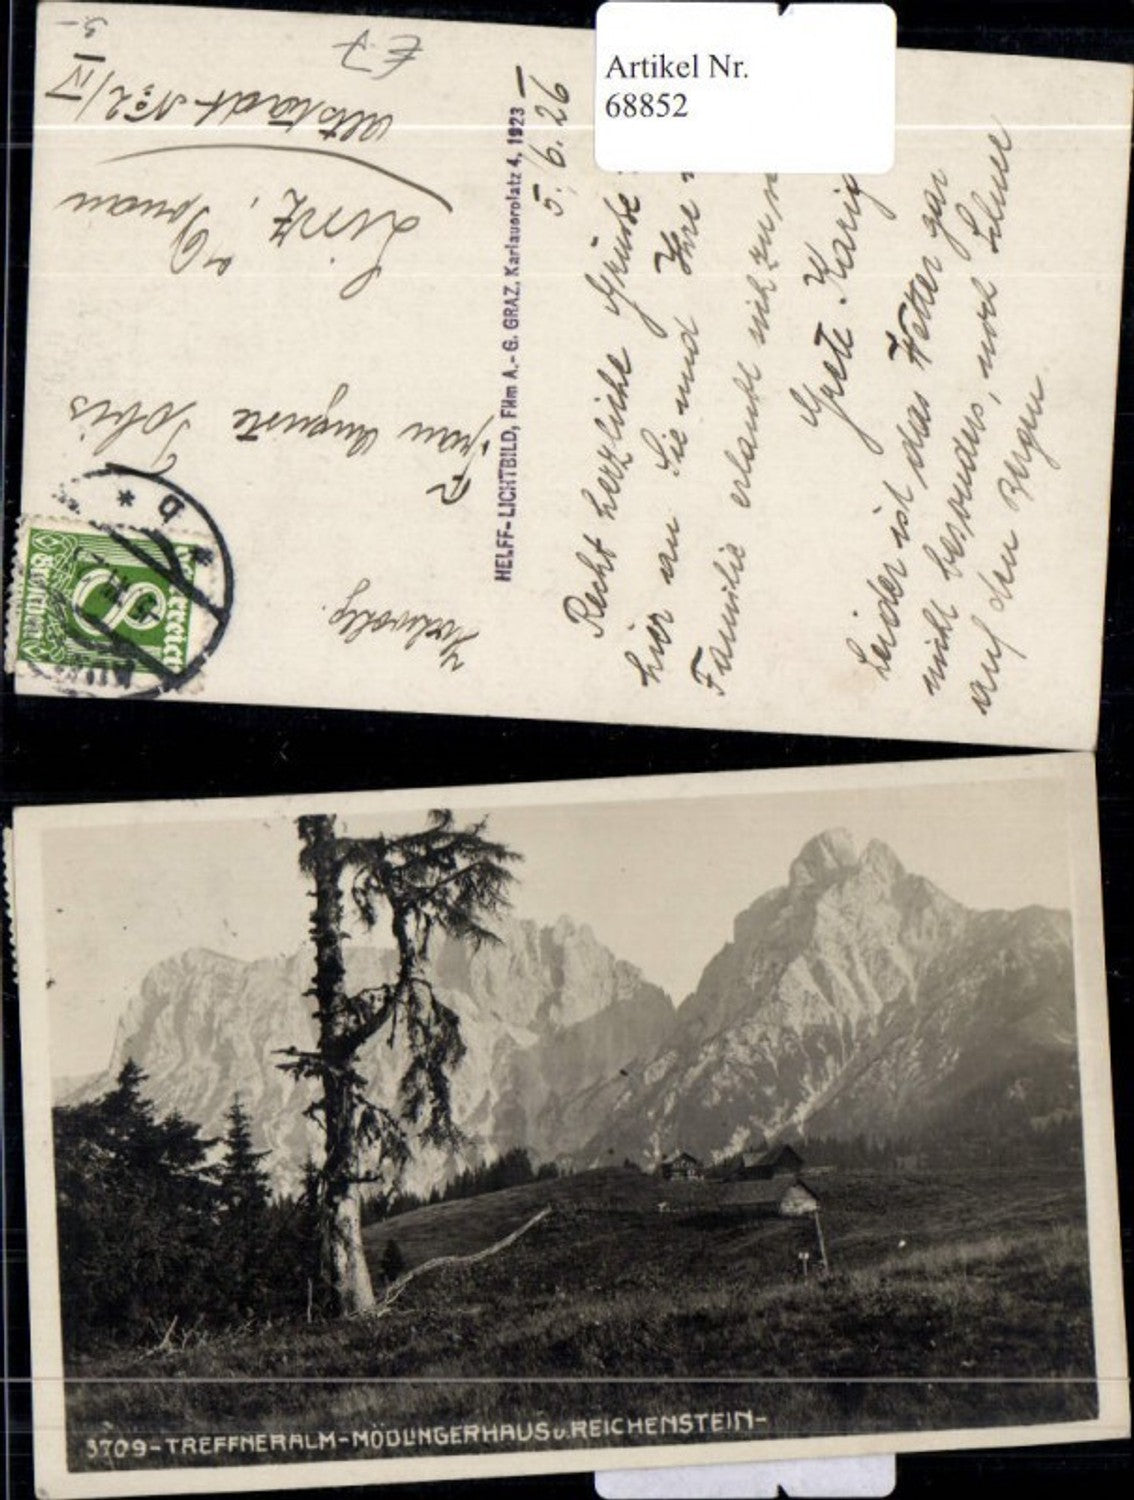 Artikel Nr.
68852
5. 6. 26
Recht herzliche Grüße
hier an Sie und Ihre
Familie erlaubt sich zu
Grete Karig
Leider ist das Wetter gar
nicht besonders, noch Schnee
auf den Bergen.
HELFF-LICHTBILD, Film A.-G. GRAZ, Karlauerplatz 4, 1923
Frau Auguste
Linz, a/Donau
Altstadt No 2/IV
8
3709-TREFFNERALM-MÖDLINGERHAUS u. REICHENSTEIN-